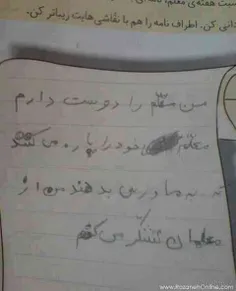 سبت هفته‌ی معلم،
دانی کن. اطراف نامه را هم با نقاشی‌هایت زیباتر کن.
من معلّم را دوست دارم
معلّم خود را پاره می کشد
که به ما درس بدهند من از
معلمان تشکّر می کنم
www.RozanehOnline.com